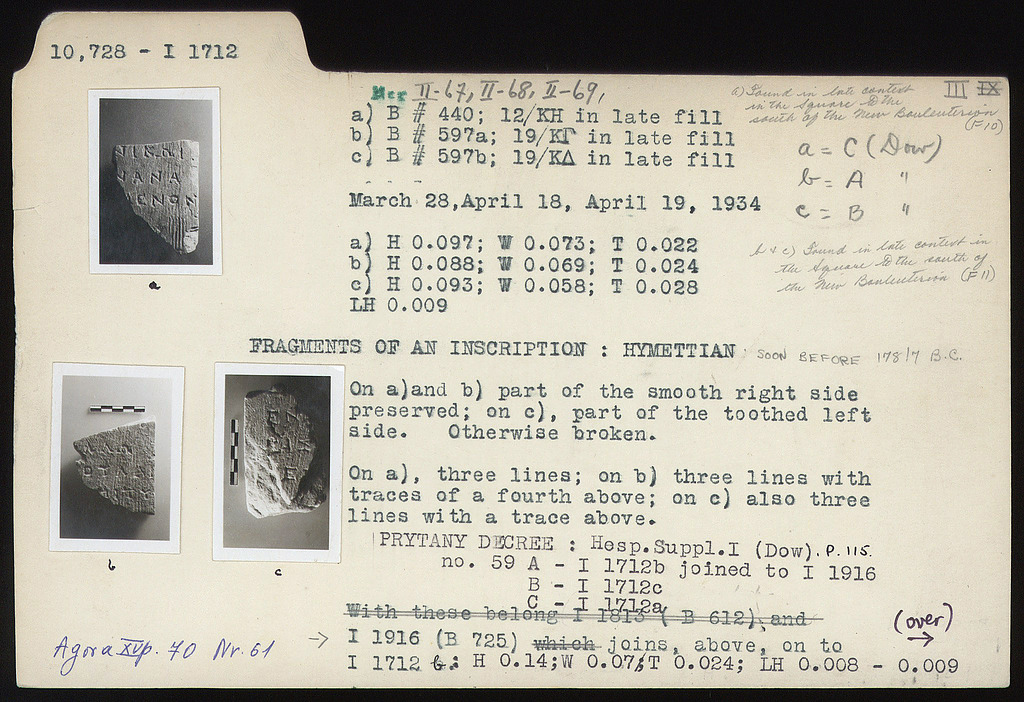 10,728 - I 1712
II-67, II-68, II-69,
III IX
a) B # 440; 12/ΚΗ in late fill
b) B # 597a; 19/ΚΓ in late fill
c) B # 597b; 19/ΚΔ in late fill
a) Found in late context
in the Square to the
south of the New Bouleuterion
(F 10)
a = C (Dow)
b = A "
c = B "
March 28, April 18, April 19, 1934
a) H 0.097; W 0.073; T 0.022
b) H 0.088; W 0.069; T 0.024
c) H 0.093; W 0.058; T 0.028
LH 0.009
b & c) Found in late context in
the Square to the south of
the New Bouleuterion (F 11)
FRAGMENTS OF AN INSCRIPTION : HYMETTIAN SOON BEFORE 178/7 B.C.
On a)and b) part of the smooth right side
preserved; on c), part of the toothed left
side. Otherwise broken.
On a), three lines; on b) three lines with
traces of a fourth above; on c) also three
lines with a trace above.
PRYTANY DECREE : Hesp.Suppl.I (Dow). P. 115.
no. 59 A - I 1712b joined to I 1916
B - I 1712c
C - I 1712a
With these belong I 1813 ( B 612), and
I 1916 (B 725) which joins, above, on to
I 1712 b.: H 0.14; W 0.07; T 0.024; LH 0.008 - 0.009
(over)
→
Agora XV p. 70 Nr. 61
a
b
c
ΝΑΝΑ
ΕΝΟΝ